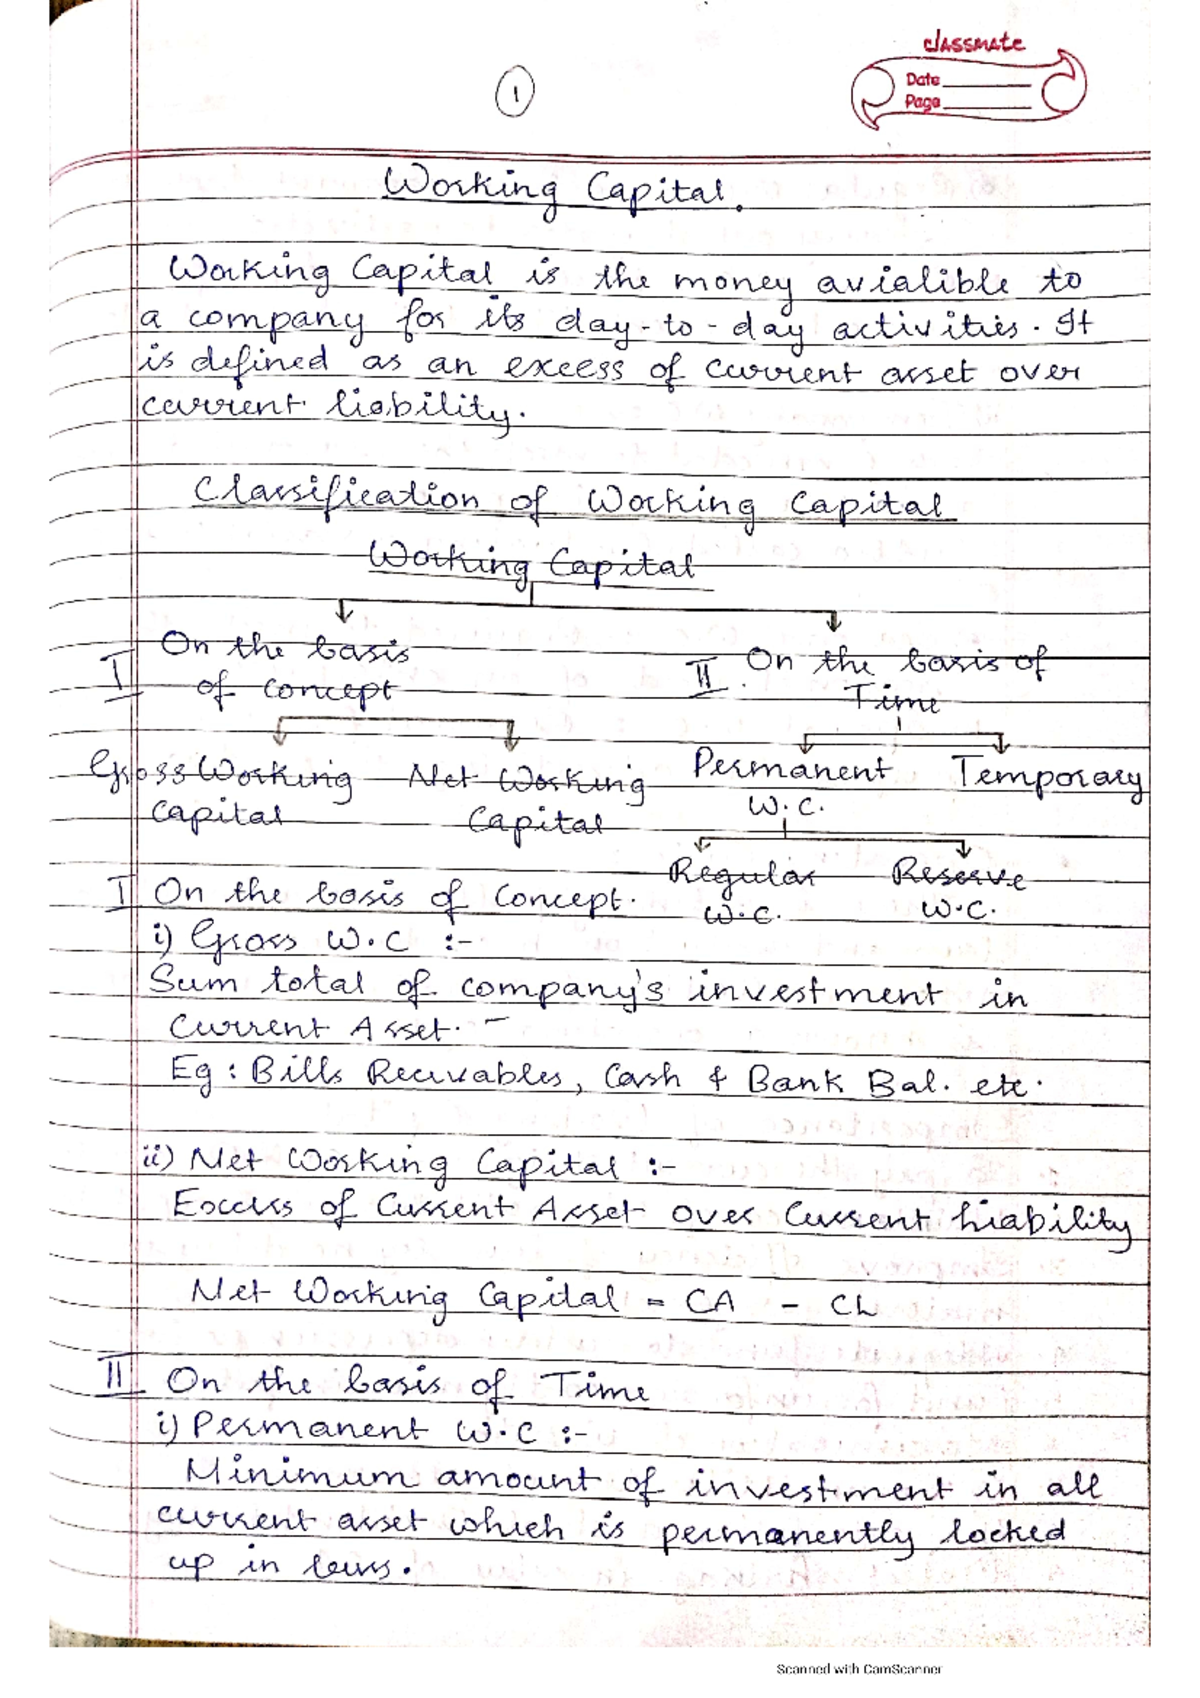 classmate
Date
Page
1
Working Capital.
Working Capital is the money avialible to
a company for its day-to-day activities. It
is defined as an excess of current asset over
current liability.
Classification of Working Capital
Working Capital
I On the basis
of concept
II. On the basis of
Time
Gross Working
Capital
Net Working
Capital
Permanent
W.C.
Temporary
Regular
W.C.
Reserve
W.C.
I On the basis of Concept.
i) Gross W.C :-
Sum total of company's investment in
Current Asset. -
Eg : Bills Receivables, Cash & Bank Bal. etc.
ii) Net Working Capital :-
Excess of Current Asset over Current Liability
Net Working Capital = CA - CL
II On the basis of Time
i) Permanent W.C :-
Minimum amount of investment in all
current asset which is permanently locked
up in
Scanned with CamScanner